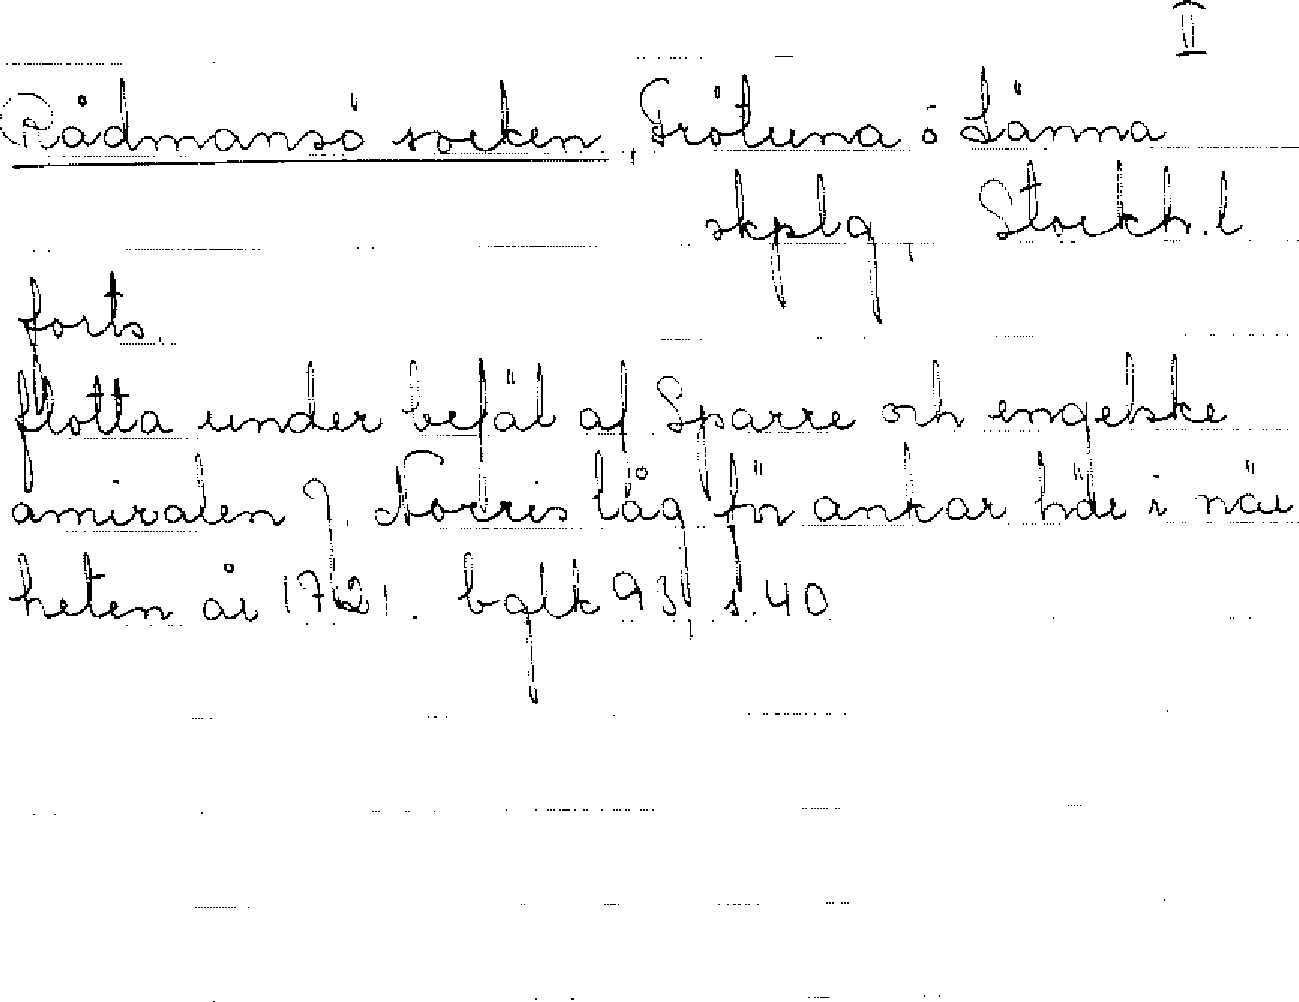 II
Rådmansö socken, Frötuna o Länna
skplg, Stockh. l
forts.
flotta under befäl af Sparre och engelske
amiralen J. Norris låg för ankar här i när
heten år 1721. bglk 93 s. 40